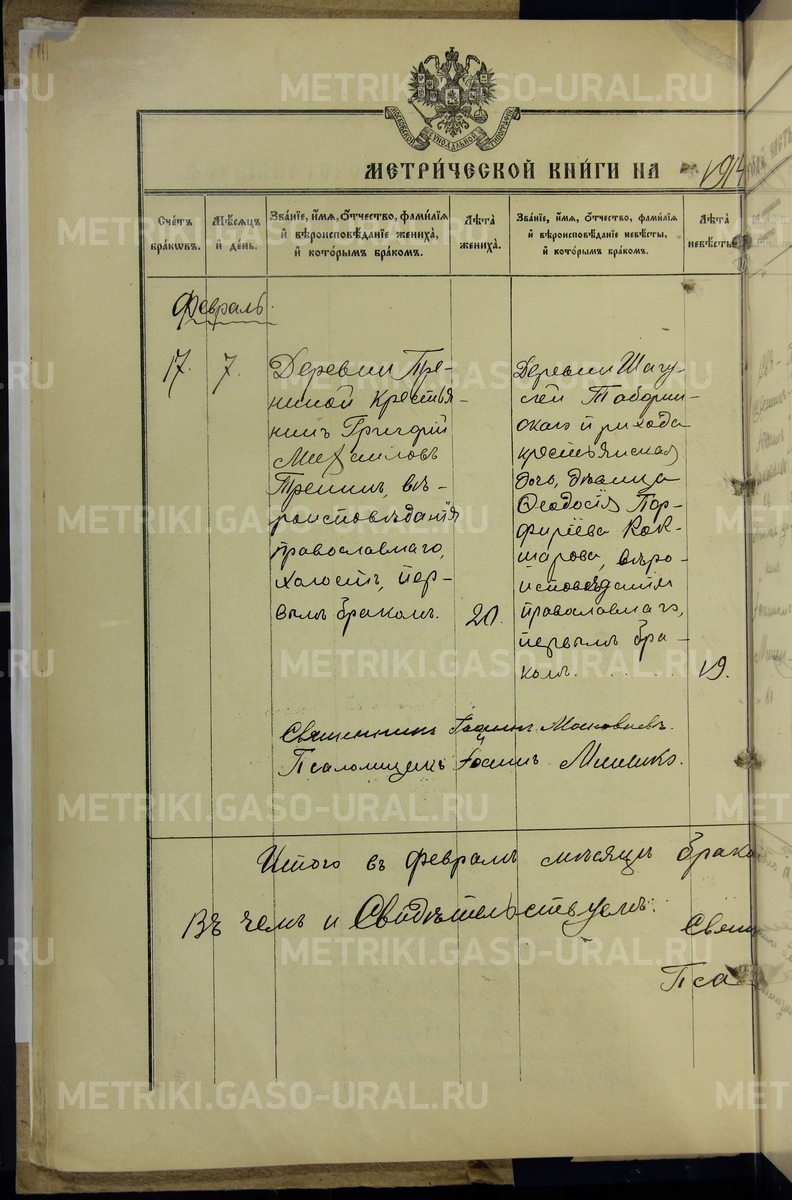 МЕТРИ́ЧЕСКОЙ КНИ́ГИ НА 1914
Сче́тъ бра́кѡвъ.
Мѣ́сяцъ и҆ де́нь.
Зва́нїе, и҆́мя, ѻ҆́тчество, фами́лїя и҆ вѣ̀роисповѣ́данїе жениха̀, и҆ кото́рымъ бра́комъ.
Лѣ́та жениха̀.
Зва́нїе, и҆́мя, ѻ҆́тчество, фами́лїя и҆ вѣ̀роисповѣ́данїе невѣ́сты, и҆ кото́рымъ бра́комъ.
Лѣ́та невѣ́сты
Февраль.
17.
7.
Деревни Тре-
ниной крестья-
нинъ Григорій
Михаиловъ
Тренинъ, вѣ-
роисповѣданія
православнаго,
холостъ, пер-
вымъ бракомъ.
20.
Деревни Шагу-
ней Таборин-
скаго прихода
крестьянская
дочь, дѣвица
Ѳеодосія Пор-
фиріева Кок-
шарова, вѣро-
исповѣданія
православнаго,
первымъ бра-
комъ.
19.
Священникъ Іоаннъ
Псаломщикъ Іоаннъ
Итого въ февралѣ мѣсяцѣ брако
Въ чемъ и Свидѣтельствуемъ:
Свящ
Пса
METRIKI.GASO-URAL.RU